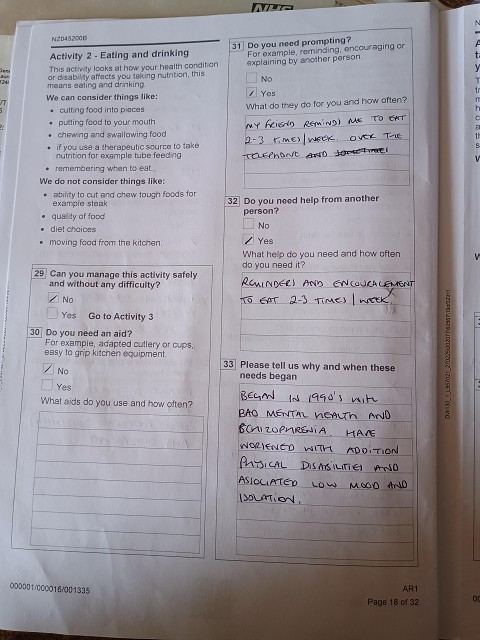 NHS
NZ045200B
Activity 2 - Eating and drinking
This activity looks at how your health condition
or disability affects you taking nutrition, this
means eating and drinking.
We can consider things like:
• cutting food into pieces
• putting food to your mouth
• chewing and swallowing food
• if you use a therapeutic source to take
nutrition for example tube feeding
• remembering when to eat
We do not consider things like:
• ability to cut and chew tough foods for
example steak
• quality of food
• diet choices
• moving food from the kitchen
29 Can you manage this activity safely
and without any difficulty?
No
Yes Go to Activity 3
30 Do you need an aid?
For example, adapted cutlery or cups,
easy to grip kitchen equipment
No
Yes
What aids do you use and how often?
31 Do you need prompting?
For example, reminding, encouraging or
explaining by another person
No
Yes
What do they do for you and how often?
MY FRIEND REMINDS ME TO EAT
2-3 TIMES/WEEK OVER THE
TELEPHONE AND SOMETIMES
32 Do you need help from another
person?
No
Yes
What help do you need and how often
do you need it?
REMINDERS AND ENCOURAGEMENT
TO EAT 2-3 TIMES/WEEK.
33 Please tell us why and when these
needs began
BEGAN IN 1990'S WITH
BAD MENTAL HEALTH AND
SCHIZOPHRENIA. HAVE
WORSENED WITH ADDITION
PHYSICAL DISABILITIES AND
ASSOCIATED LOW MOOD AND
ISOLATION.
000001/000016/001335
AR1
Page 18 of 32